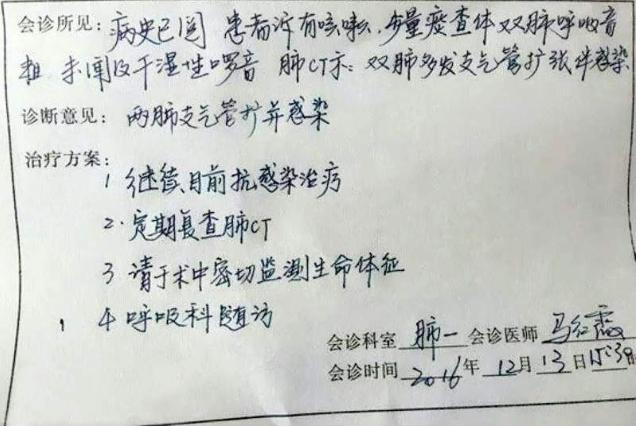 会诊所见: 病史已阅 患者诉有咳嗽、少量痰查体双肺呼吸音
粗 未闻及干湿性啰音 肺CT示: 双肺多发支气管扩张伴感染
诊断意见: 两肺支气管扩并感染
治疗方案:
1 继续目前抗感染治疗
2. 定期复查肺CT
3 请于术中密切监测生命体征
4 呼吸科随访
会诊科室 肺一 会诊医师 马红霞
会诊时间 2016年 12月 13日 15:30